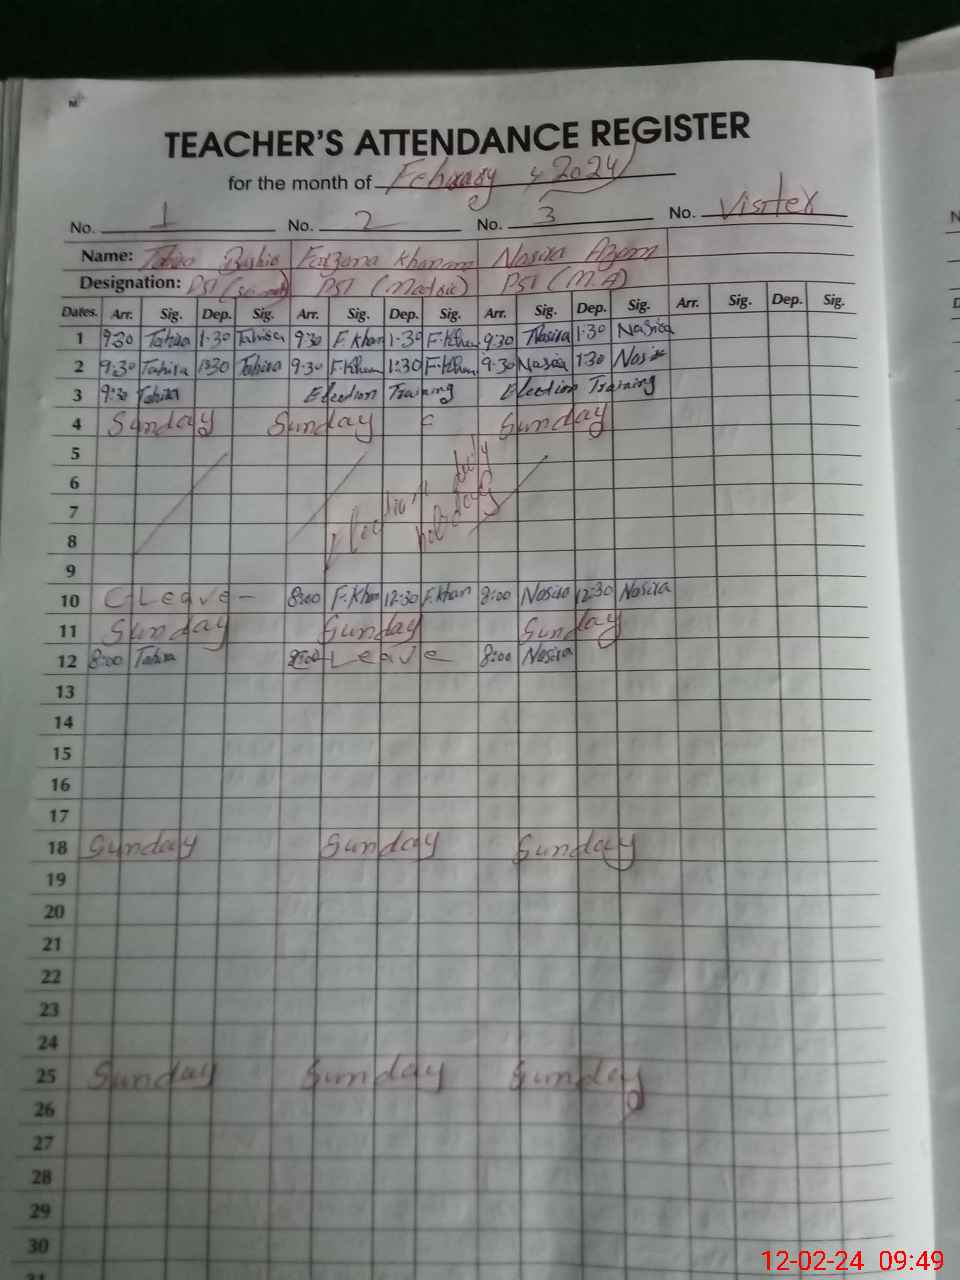 TEACHER'S ATTENDANCE REGISTER
for the month of February, 2024
No. 1 No. 2 No. 3 No. Visiter
Name: Tahira Bushra Farzana Khanam Nasira Azam
Designation: PST ( PST (Matric) PST (M.A)
Dates. Arr. Sig. Dep. Sig. Arr. Sig. Dep. Sig. Arr. Sig. Dep. Sig. Arr. Sig. Dep. Sig.
1 9:30 Tahira 1:30 Tahira 9:30 F.Khan 1:30 F.Khan 9:30 Nasira 1:30 Nasira
2 9:30 Tahira 1:30 Tahira 9:30 F.Khan 1:30 F.Khan 9:30 Nasira 1:30 Nasir
3 9:30 Tahira Election Training Election Training
4 Sunday Sunday Sunday
5
6
7 Election duty holiday
8
9
10 C Leave - 8:00 F.Khan 12:30 F.Khan 8:00 Nasira 12:30 Nasira
11 Sunday Sunday Sunday
12 8:00 Tahira 8:00 Leave 8:00 Nasira
13
14
15
16
17
18 Sunday Sunday Sunday
19
20
21
22
23
24
25 Sunday Sunday Sunday
26
27
28
29
30
31
12-02-24 09:49